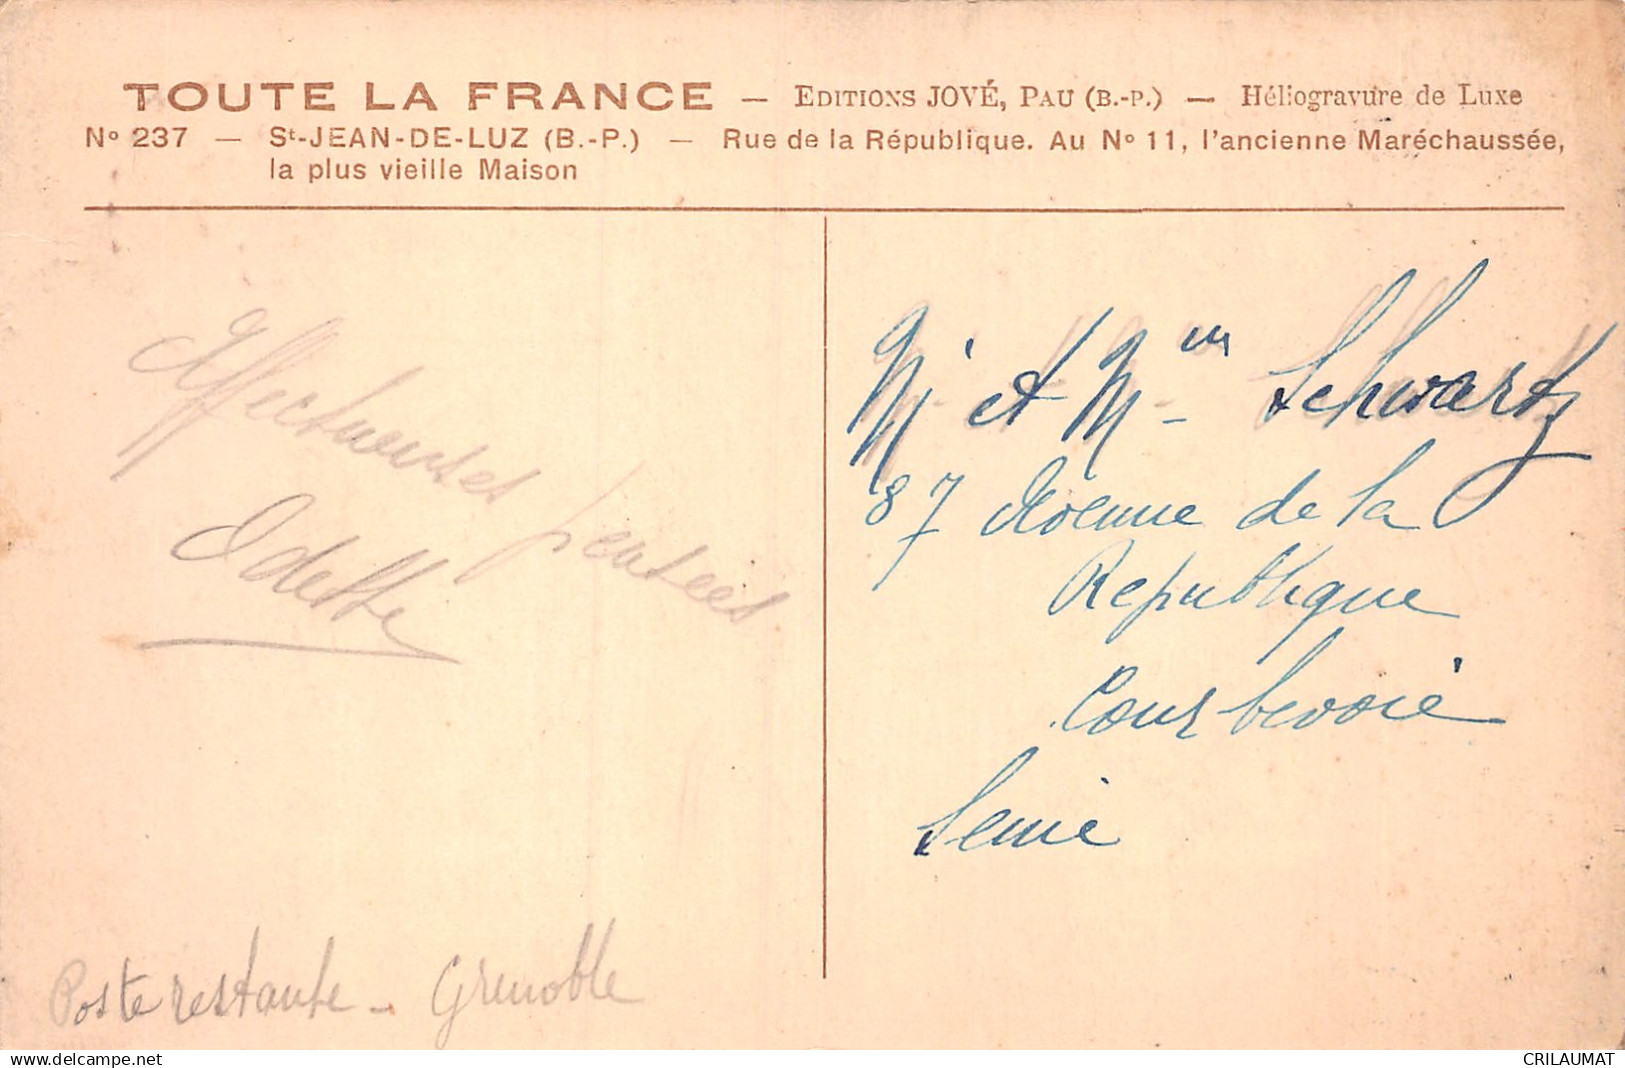 TOUTE LA FRANCE — EDITIONS JOVÉ, PAU (B.-P.) — Héliogravure de Luxe
Nº 237 — St-JEAN-DE-LUZ (B.-P.) — Rue de la République. Au Nº 11, l'ancienne Maréchaussée,
la plus vieille Maison
Affectueuses pensées
Odette
Poste restante - Grenoble
Mr et Mme Schwartz
87 Avenue de la
Republique
Courbevoie
Seine
www.delcampe.net
CRILAUMAT